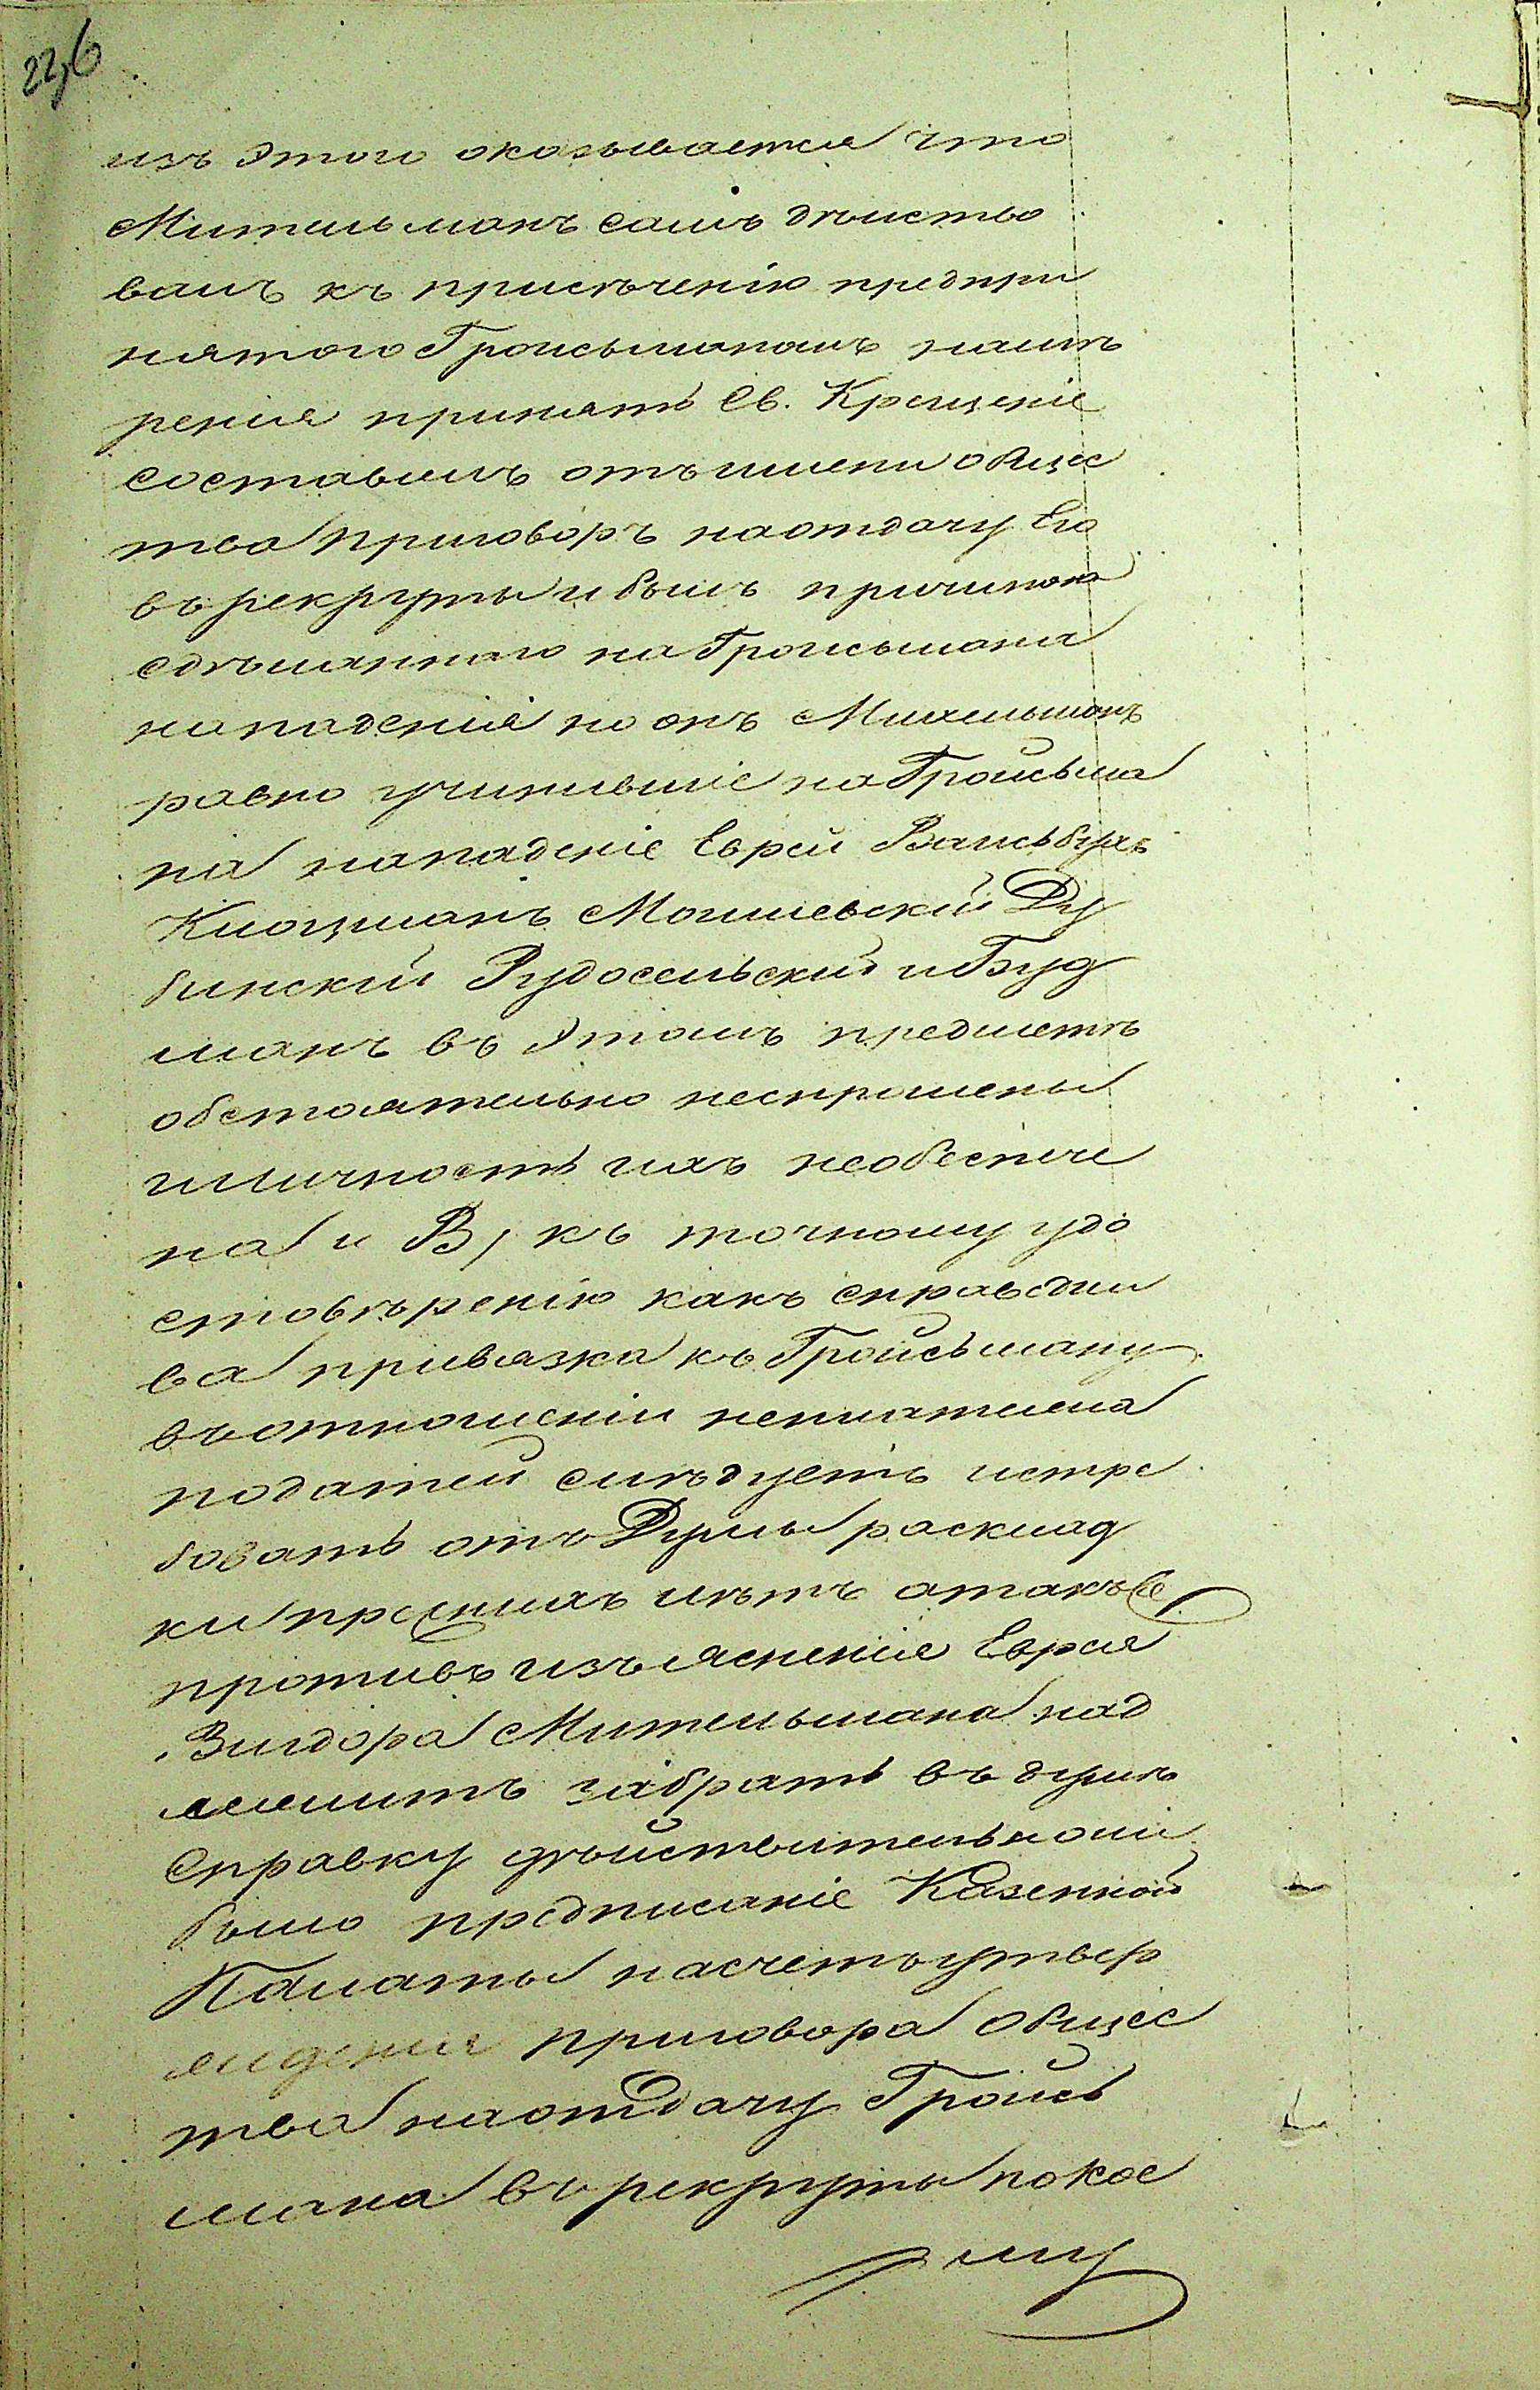 226
изъ этого оказывается что
Мительманъ самъ дѣиство
валъ къ присѣченію предпри
нятого Гроисьманомъ намѣ
рения принять Св. Крещеніе
составилъ отъ имени общес
тва приговоръ на отдачу Его
въ рекруты и былъ причиною
сдѣланнаго на Гроисьмана
нападенія но онъ Мительманъ
равно учинившіе на Гройсьма
на нападеніе Евреи Ваисьбухъ
Клоцманъ Могилевскій Ду
бинскій Рудосельский и Гуд
манъ въ этомъ предметѣ
обстоятельно неспрошены
иличность ихъ необеспече
на и В, къ точному удо
стовѣренію какъ справедли
ва привязка къ Гройсьману
въ отношеніи неплатежа
податей слѣдуетъ истре
бовать отъ Думы расклад
ки прежнихъ лѣтъ атакъже
противъ изъясненіе Еврея
Вигдора Мительмана над
лежитъ забрать въ думѣ
Справку дѣйствительноли
было предписаніе Казенной
Палаты насчетъ утвер
жденія приговора общес
тва на отдачу Гройсь
мана въ рекруты по кое
му